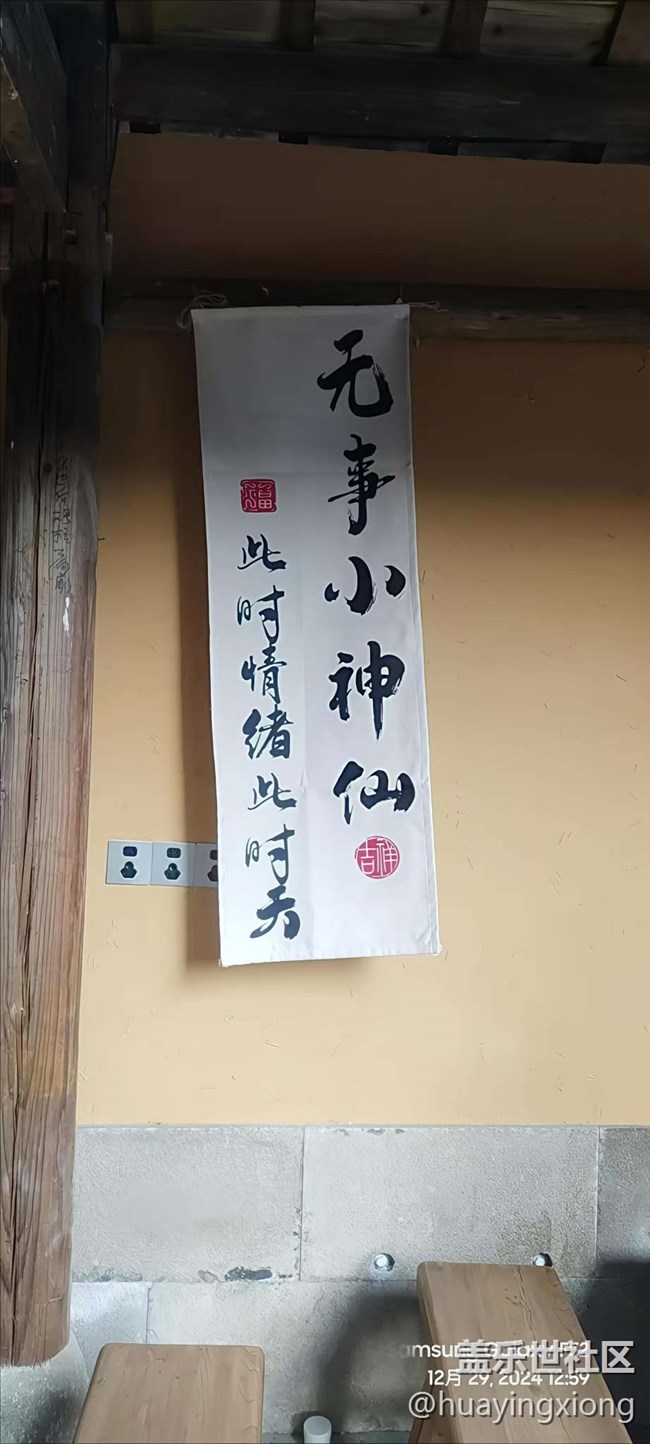 无事小神仙
吉祥
福
此时情绪此时天
盖乐世社区
12月 29, 2024 12:59
@huayingxiong